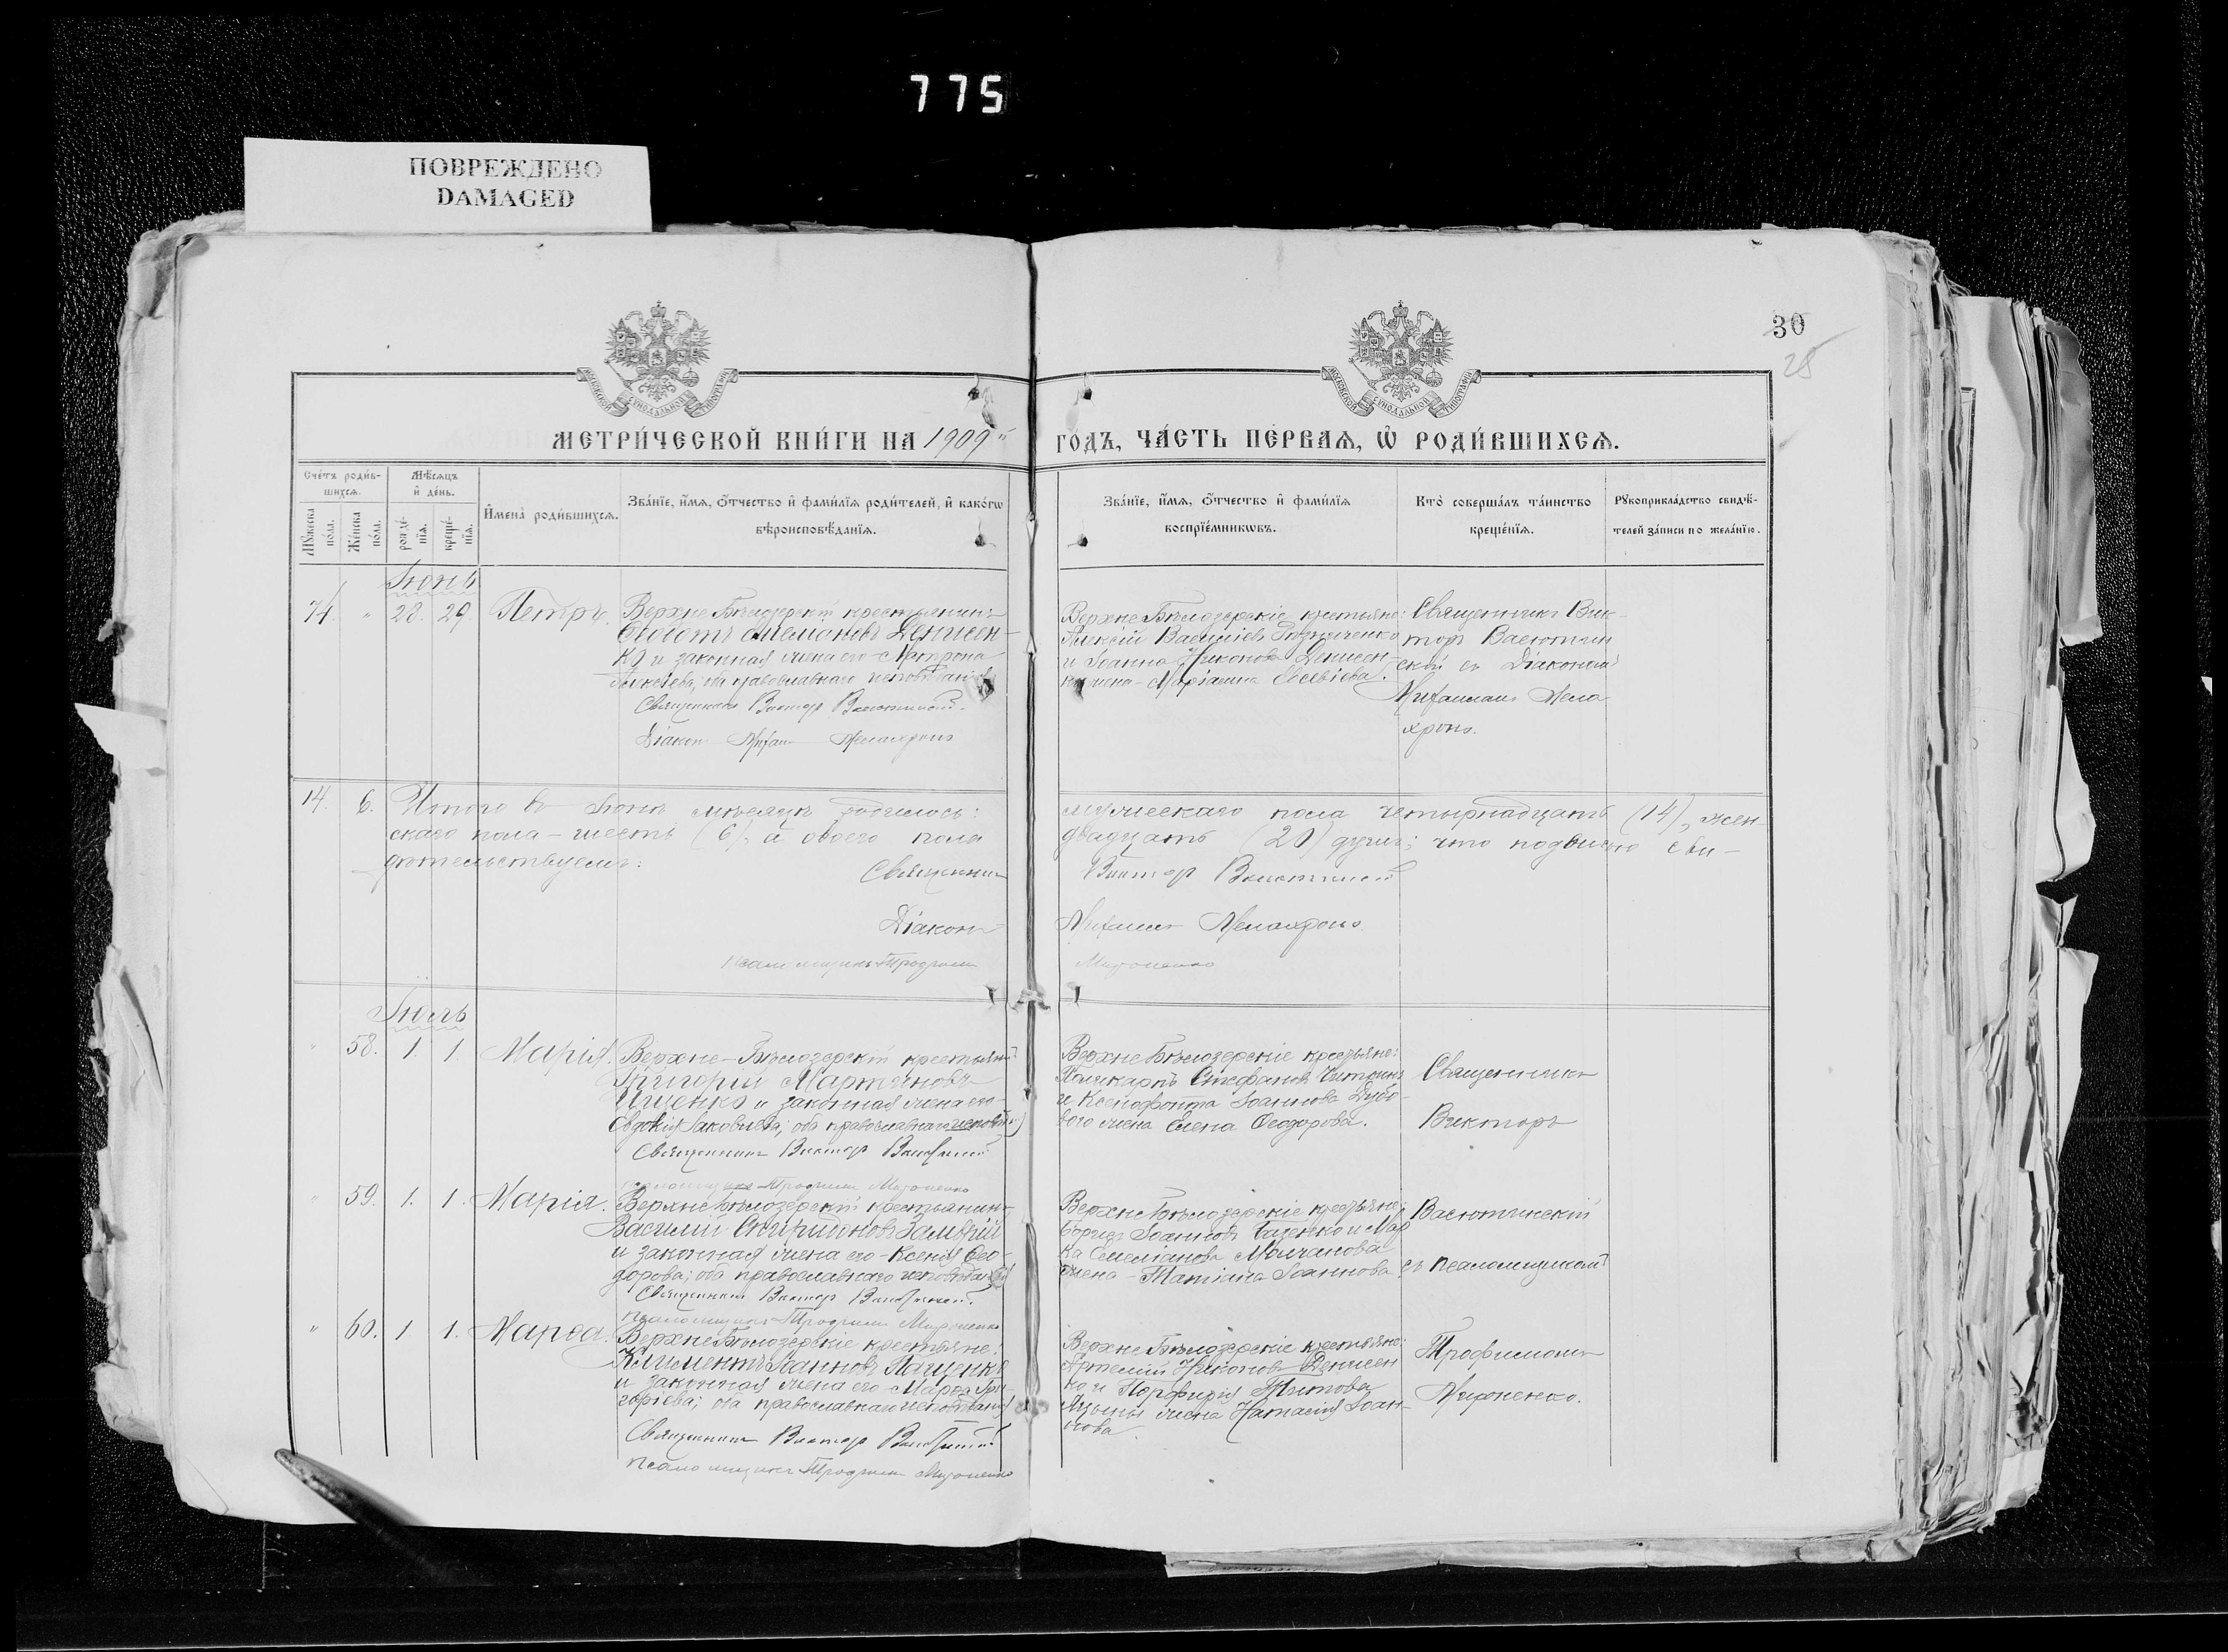 775
ПОВРЕЖДЕНО
DAMAGED
30
28
МОСКОВСКОЙ СѴНОДАЛЬНОЙ ТИПОГРАФІИ
МОСКОВСКОЙ СѴНОДАЛЬНОЙ ТИПОГРАФІИ
МЕТРИ́ЧЕСКОЙ КНИ́ГИ НА 1909 ГО́ДЪ, ЧА́СТЬ ПЕ́РВАѦ, Ѡ РОДИ́ВШИХСѦ.
Сче́тъ роди́в-
шихсѧ.
Мꙋ́жеска по́ла.
Же́нска по́ла.
Мѣ́сѧцъ
и҆ де́нь.
рожде́-
нїѧ.
креще́-
нїѧ.
И҆мена̀ роди́вшихсѧ.
Зва́нїе, и҆́мѧ, ѻ҆́тчество и҆ фами́лїѧ роди́телей, и҆ како́гѡ
вѣроисповѣ́данїѧ.
Зва́нїе, и҆́мѧ, ѻ҆́тчество и҆ фами́лїѧ
воспрїе́мникѡвъ.
Кто̀ соверша́лъ та́инство
креще́нїѧ.
Рꙋкоприкла́дство свидѣ́-
телей за́писи по жела́нїю.
Іюнь
74. " 28. 29. Петръ.
Верхне Бѣлозерскій крестьянинъ
Ѳеоготъ Емеліановъ Денисен-
ко и законная жена его Матрона
Алексіева; оба православнаго исповѣданія
Священникъ Викторъ Васютинскій.
Діаконъ Михаилъ Мелахронъ
Верхне Бѣлозерскіе крестьяне:
Алексій Василіевъ
и Іоанна Никонова Денисен-
ко жена - Маріанна Евсевіева.
Священникъ Вик-
торъ Васютин-
скій съ Діакономъ
Михаиломъ Мела-
хрономъ.
14. 6. Итого въ Іюнѣ мѣсяцѣ родилось: мужескаго пола четырнадцать (14), жен-
скаго пола - шесть (6), а обоего пола двадцать (20) душъ; что подписью сви-
дѣтельствуемъ:
Священникъ Викторъ Васютинскій
Діаконъ Михаилъ Мелахронъ
Псаломщикъ Трофимъ Мироненко
Іюль
" 58. 1. 1. Марія.
Верхне-Бѣлозерскій крестьянинъ
Григорій Мартиновъ
Ищенко и законная жена его
Евдокія Іаковлева; оба православнаго исповѣд.
Священникъ Викторъ Васютинскій
псаломщикъ Трофимъ Мироненко
Верхне Бѣлозерскіе крестьяне:
Поликарпъ Стефановъ
и Ксенофонта Іоаннова Дубо-
вого жена Елена Ѳеодорова.
Священникъ
Викторъ
" 59. 1. 1. Марія.
Верхне Бѣлозерскій крестьянинъ
Василій Спиридоновъ Замврій
и законная жена его - Ксенія Ѳео-
дорова; оба православнаго исповѣданія
Священникъ Викторъ Васютинскій.
псаломщикъ Трофимъ Мироненко
Верхне Бѣлозерскіе крестьяне:
Борисъ Іоанновъ и Мар
ка Емеліанова Молчанова
жена - Татіана Іоаннова
Васютинскій
съ псаломщикомъ
" 60. 1 1. Марѳа.
Верхне Бѣлозерскіе крестьяне:
Климентъ Іоанновъ Пащенко
и законная жена его - Марѳа Гри-
горіева; оба православнаго исповѣданія
Священникъ Викторъ Васютинскій
псаломщикъ Трофимъ Мироненко
Верхне Бѣлозерскіе крестьяне:
Артемій Никоновъ Денисен
ко и Порфирія Титова
жена Наталія Іоан-
нова.
Трофимомъ
Мироненко.